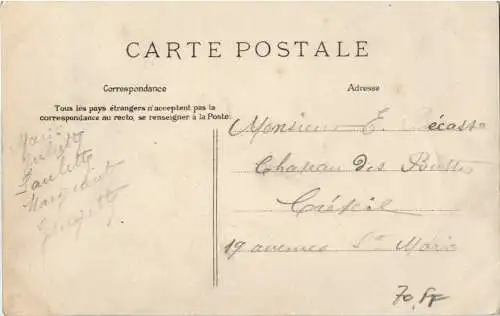 CARTE POSTALE
Correspondance
Adresse
Tous les pays étrangers n'acceptent pas la
correspondance au recto, se renseigner à la Poste:
Marie
Juliette
Paulette
Marguerite
Monsieur E. Bécasse
Chateau des Buttes
Créteil
19 avenue Ste Marie
70 FF